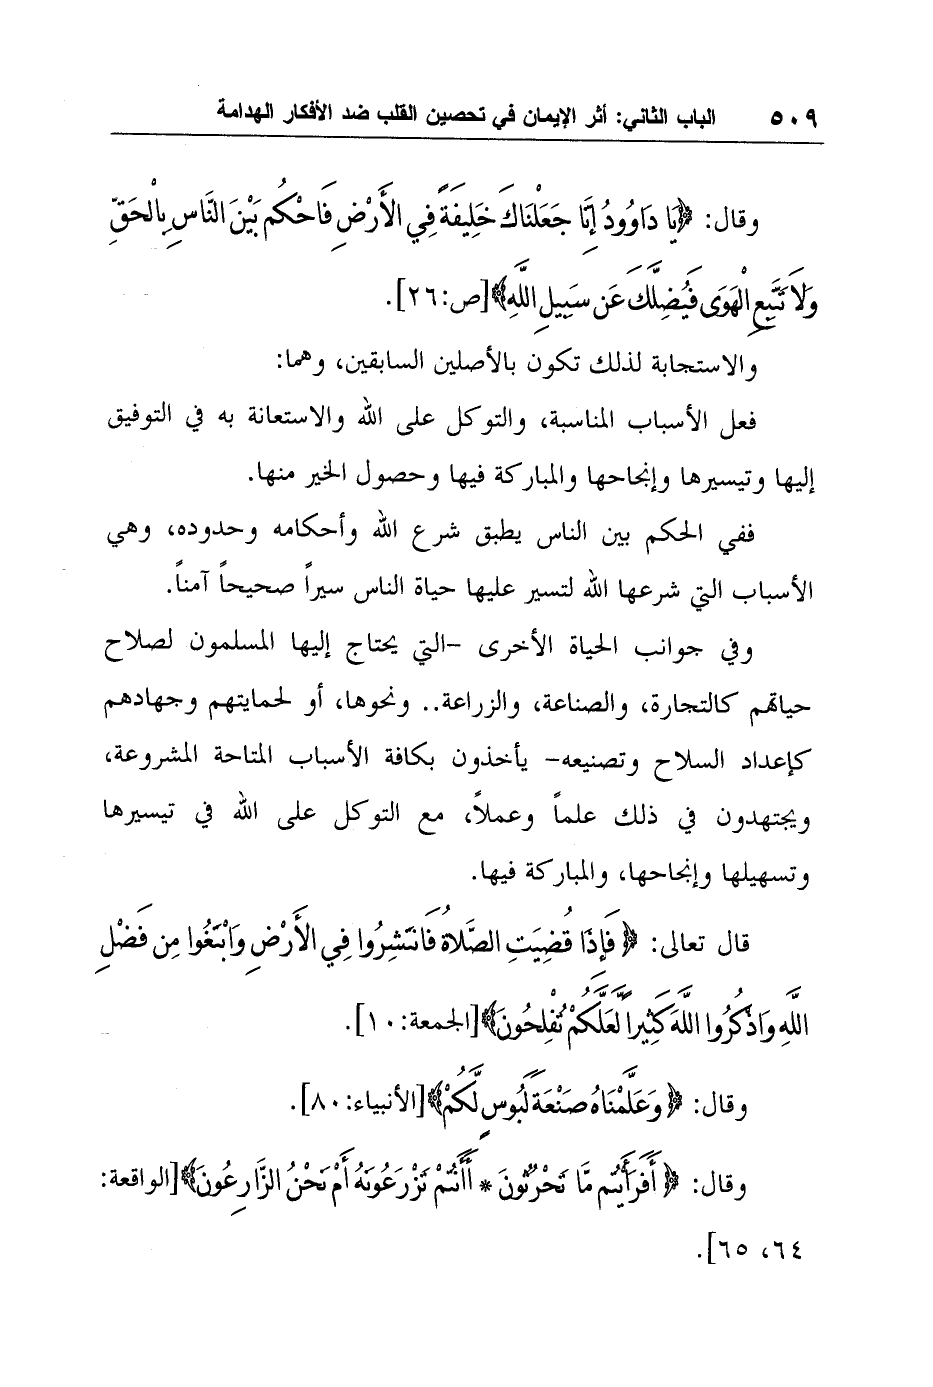 ٥٠٩ الباب الثاني: أثر الإيمان في تحصين القلب ضد الأفكار الهدامة
وقال: ﴿يَا دَاوُودُ إِنَّا جَعَلْنَاكَ خَلِيفَةً فِي الْأَرْضِ فَاحْكُم بَيْنَ النَّاسِ بِالْحَقِّ
وَلَا تَتَّبِعِ الْهَوَى فَيُضِلَّكَ عَن سَبِيلِ اللَّهِ﴾[ص:٢٦].
والاستجابة لذلك تكون بالأصلين السابقين، وهما:
فعل الأسباب المناسبة، والتوكل على الله والاستعانة به في التوفيق
إليها وتيسيرها وإنجاحها والمباركة فيها وحصول الخير منها.
ففي الحكم بين الناس يطبق شرع الله وأحكامه وحدوده، وهي
الأسباب التي شرعها الله لتسير عليها حياة الناس سيراً صحيحاً آمناً.
وفي جوانب الحياة الأخرى –التي يحتاج إليها المسلمون لصلاح
حياتهم كالتجارة، والصناعة، والزراعة.. ونحوها، أو لحمايتهم وجهادهم
كإعداد السلاح وتصنيعه– يأخذون بكافة الأسباب المتاحة المشروعة،
ويجتهدون في ذلك علماً وعملاً، مع التوكل على الله في تيسيرها
وتسهيلها وإنجاحها، والمباركة فيها.
قال تعالى: ﴿فَإِذَا قُضِيَتِ الصَّلَاةُ فَانتَشِرُوا فِي الْأَرْضِ وَابْتَغُوا مِن فَضْلِ
اللَّهِ وَاذْكُرُوا اللَّهَ كَثِيراً لَّعَلَّكُمْ تُفْلِحُونَ﴾[الجمعة:١٠].
وقال: ﴿وَعَلَّمْنَاهُ صَنْعَةَ لَبُوسٍ لَّكُمْ﴾[الأنبياء:٨٠].
وقال: ﴿أَفَرَأَيْتُم مَّا تَحْرُثُونَ * أَأَنتُمْ تَزْرَعُونَهُ أَمْ نَحْنُ الزَّارِعُونَ﴾[الواقعة:
٦٤، ٦٥].